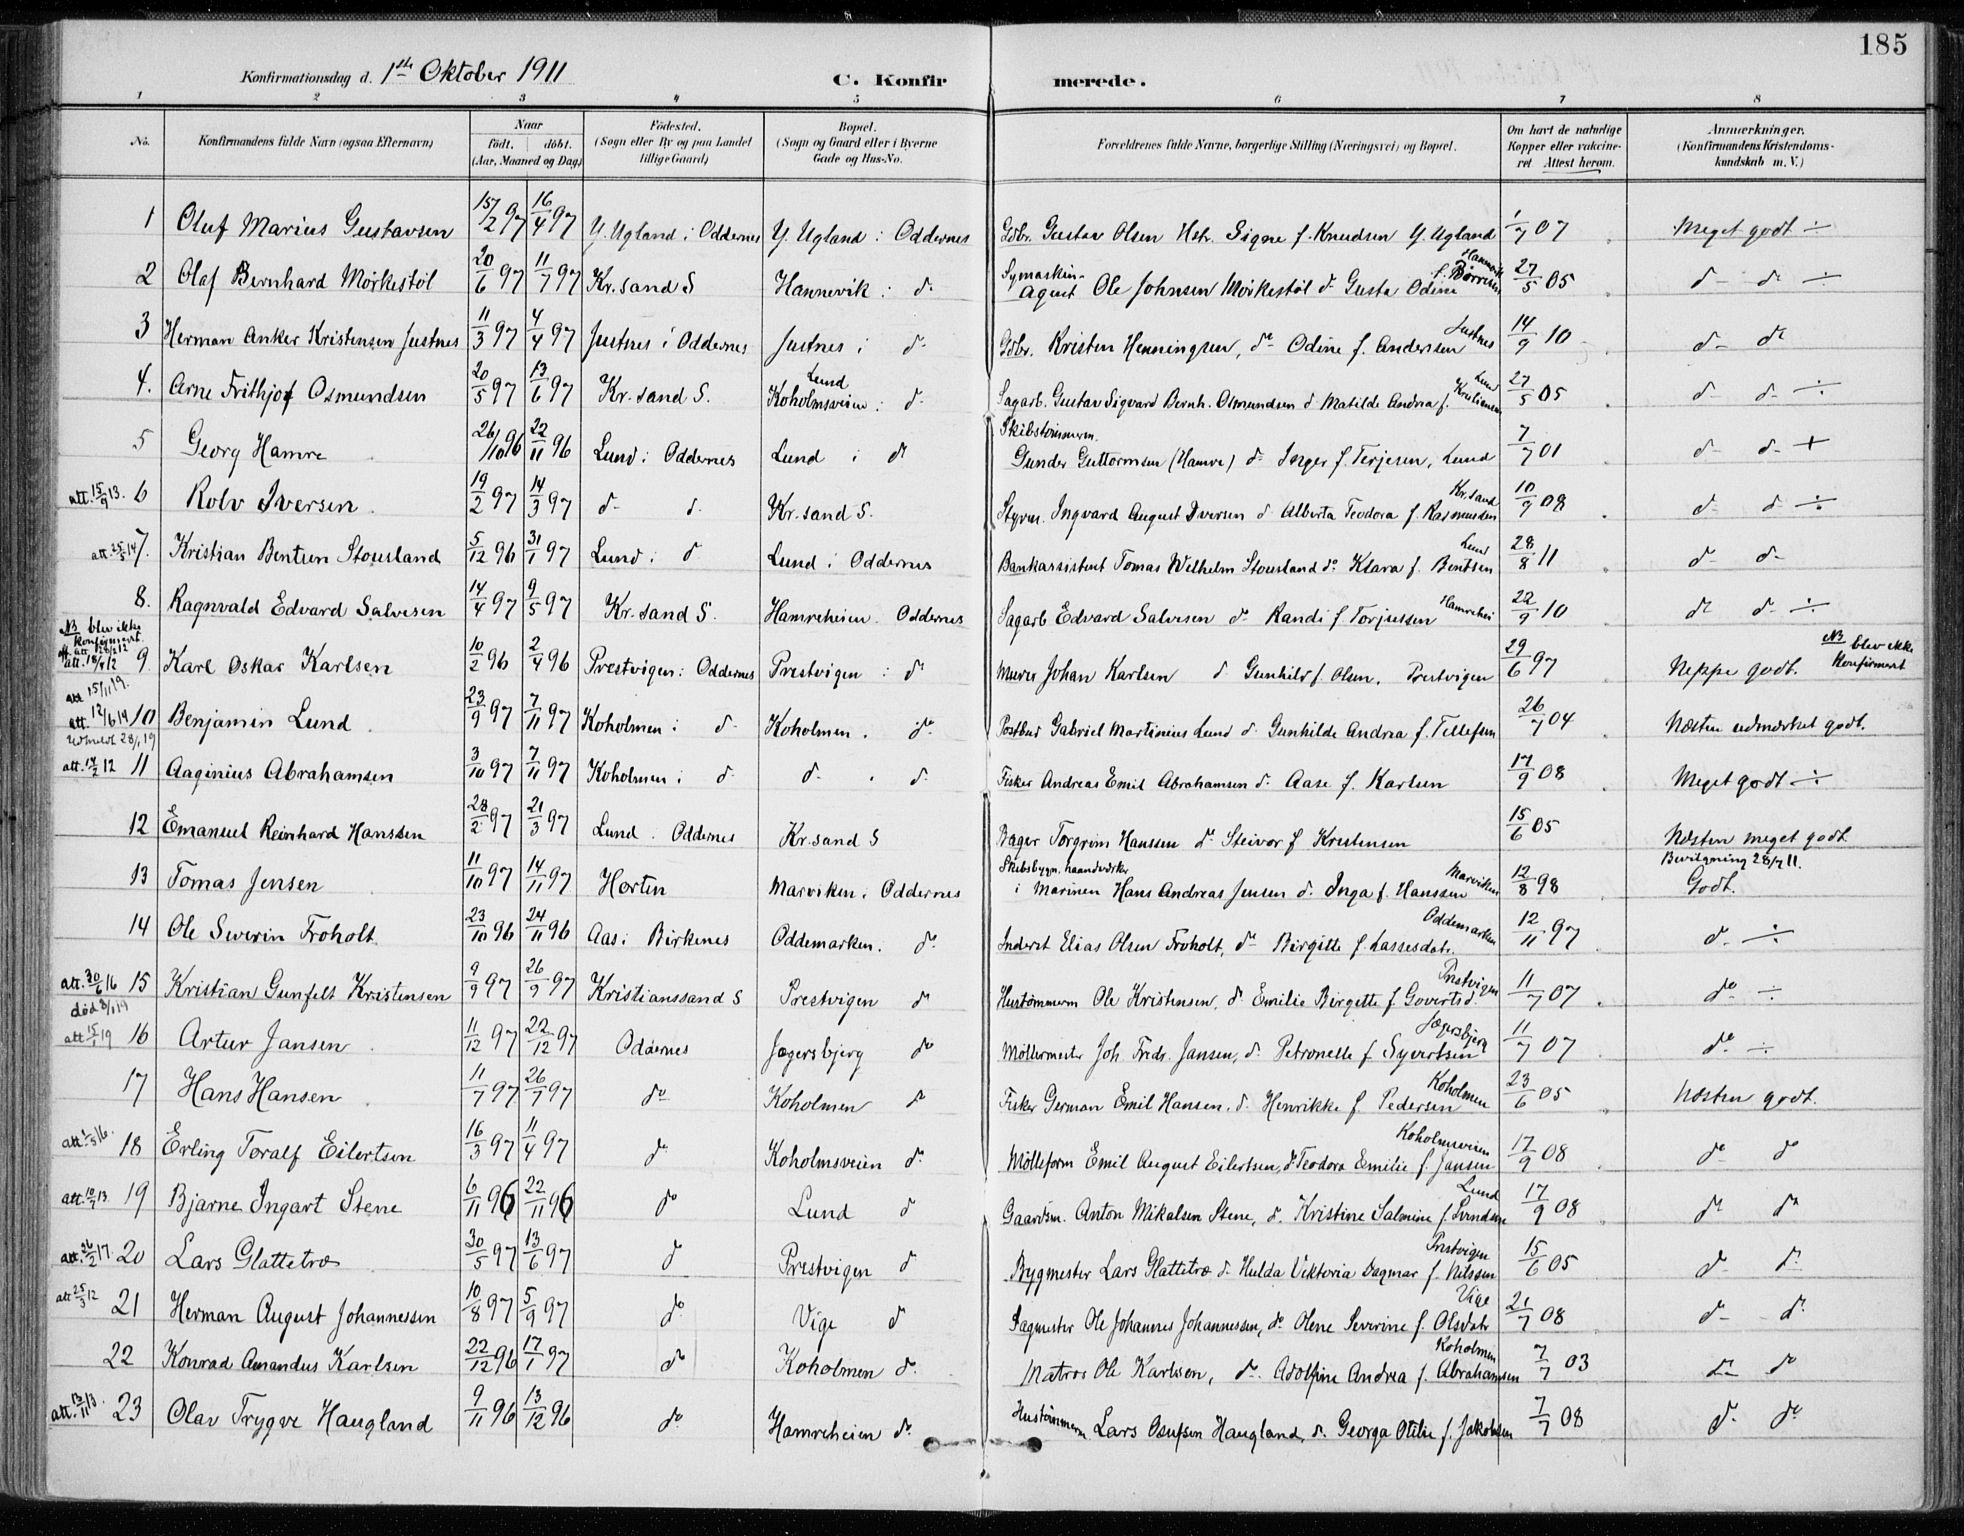 185
Konfirmationsdag d. 1ste Oktober 1911
C. Konfirmerede.
1 2 3 4 5 6 7 8
No. Konfirmandens fulde Navn (ogsaa Efternavn) Naar født. døbt. (Aar, Maaned og Dag) Fødested. (Sogn eller By og paa Landet tillige Gaard) Bopæl. (Sogn og Gaard eller i Byerne Gade og Hus-No. Forældrenes fulde Navne, borgerlige Stilling (Næringsvei) og Bopæl. Om havt de naturlige Kopper eller vakcineret Attest herom. Anmærkninger. (Konfirmandens Kristendomskundskab m. V.)
1 Oluf Marius Gustavsen 15/2 97 16/4 97 Y. Ugland i Oddernes Y. Ugland i Oddernes Gdbr. Gustav Olsen Hstr. Signe f. Knudsen Y. Ugland 1/7 07 Meget godt ÷
2 Olaf Bernhard Mørkestøl 20/6 97 11/7 97 Kr.sand S Hannevik i do Symaskin-Agent Ole Johnsen Mørkestøl do Gusta Odine f. Børresen Hannevik 27/5 05 do do ÷
3 Herman Anker Kristensen Justnes 11/3 97 4/4 97 Justnes i Oddernes Justnes i do Gdbr. Kristen Henningsen, do Odine f. Andersen Justnes 14/9 10 do do
4. Arne Frithjof Osmundsen 20/5 97 13/6 97 Kr.sand S. Lund Koholmsveien i do Sagarb. Gustav Sigvard Bernh. Osmundsen do Matilde Andrea f. Kristiansen Lund 27/5 05 do do ÷
5 Georg Hamre 26/10 96 22/11 96 Lund i Oddernes Lund i do Skibstømmerm. Gunder Guttormsen (Hamre) do Inger f. Terjesen, Lund 7/7 01 do do +
att. 15/9 13. 6 Rolv Iversen 19/2 97 14/3 97 do do Kr.sand S. Styrm. Ingvard August Iversen do Alberta Teodora f. Rasmussen Kr.sand 10/9 08 do do ÷
att. 25/5 14 7. Kristian Bentsen Stousland 5/12 96 31/1 97 Lund i do Lund i Oddernes Bankassistent Tomas Wilhelm Stousland do Klara f. Bentsen Lund 28/8 11 do do
8. Ragnvald Edvard Salvesen 14/4 97 9/5 97 Kr.sand S. Hamreheien Oddernes Sagarb Edvard Salvesen do Randi f. Torjussen Hamrehei 22/9 10 do do ÷
NB blev ikke konfirmert. att. 18/9 12 9 Karl Oskar Karlsen 10/2 96 2/4 96 Prestvigen i Oddernes Prestvigen i do Murer Johan Karlsen do Gunhild f. Olsen, Prestvigen 29/6 97 Neppe godt. NB blev ikke Konfirmert
att 15/11 9. att. 12/6 14 Udmeldt 28/1 19 10 Benjamin Lund 23/9 97 7/11 97 Koholmen i do Koholmen i do Postbud Gabriel Martinius Lund do Gunhilde Andrea f. Tellefsen 26/7 04 Næsten udmærket godt.
att. 14/2 12 11 Aaginius Abrahamsen 3/10 97 7/11 97 Koholmen i do do do Fisker Andreas Emil Abrahamsen do Aase f. Karlsen 17/9 08 Meget godt ÷
12 Emanuel Reinhard Hanssen 28/2 97 21/3 97 Lund Oddernes Kr.sand S Bager Torgrim Hanssen do Steivor f Kristensen 15/6 05 Næsten meget godt
13 Tomas Jensen 11/10 97 14/11 97 Horten Marviken i Oddernes Skibsbygn. haandværker i Marinen Hans Andreas Jensen do Inga f. Hanssen Marviken 12/8 98 Bevilgning 28/7 11. Godt.
14 Ole Severin Froholt 23/10 96 24/11 96 Aas i Birkenes Oddemarken. do Inderst Elias Olsen Froholt, do Birgitte f. Lassesdatr. Oddemarken 12/11 97 do ÷
att. 30/6 16 død 3/1 19 15 Kristian Gunfelt Kristensen 9/9 97 26/9 97 Kristianssand S Prestvigen do Hustømmerm Ole Kristensen, do Emilie Birgette f. Govertsd. Prestvigen 11/7 07 do ÷
att 15/1 19 16 Artur Jansen 11/12 97 22/12 97 Oddernes Jægersbjerg do Møllermester Joh. Fredr. Jansen, do Petronelle f. Syvertsen Jægersbjerg 11/7 07 do ÷
17 Hans Hansen 11/7 97 26/7 97 do Koholmen do Fisker German Emil Hansen, do Henrikke f. Pedersen Koholmen 23/6 05 Næsten godt.
att 1/5 16. 18 Erling Toralf Eilertsen 16/3 97 11/4 97 do Koholmsveien do Mølleform Emil August Eilertsen, do Teodora Emilie f. Jansen Koholmsveien 17/9 08 do do
att. 10/7 13. 19 Bjarne Ingart Stene 6/11 96 22/11 96 do Lund do Gaardsm. Anton Mikalsen Stene, do Kristine Salmine f. Svendsen Lund 17/9 08 do do
att. 26/2 17. 20 Lars Glattetræ 30/5 97 13/6 97 do Prestvigen do Bygmester Lars Glattetræ do Hulda Viktoria Dagmar f. Nilssen Prestvigen 15/6 05 do do
att 25/3 12 21 Herman August Johannessen 10/8 97 5/9 97 do Vige do Sagmester Ole Johannes Johannessen, do Olene Severine f. Olsdatr Vige 21/7 08 do do
22 Konrad Amandus Karlsen 22/12 96 17/1 97 do Koholmen do Matros Ole Karlsen, do Adolfine Andrea f. Abrahamsen Koholmen 7/7 03 do do
att. 13/11 13. 23 Olav Trygve Haugland 9/11 96 13/12 96 do Hamreheien do Hustømmerm Lars Osufsen Haugland, do Georga Otilie f. Jakobsen 7/7 08 do do